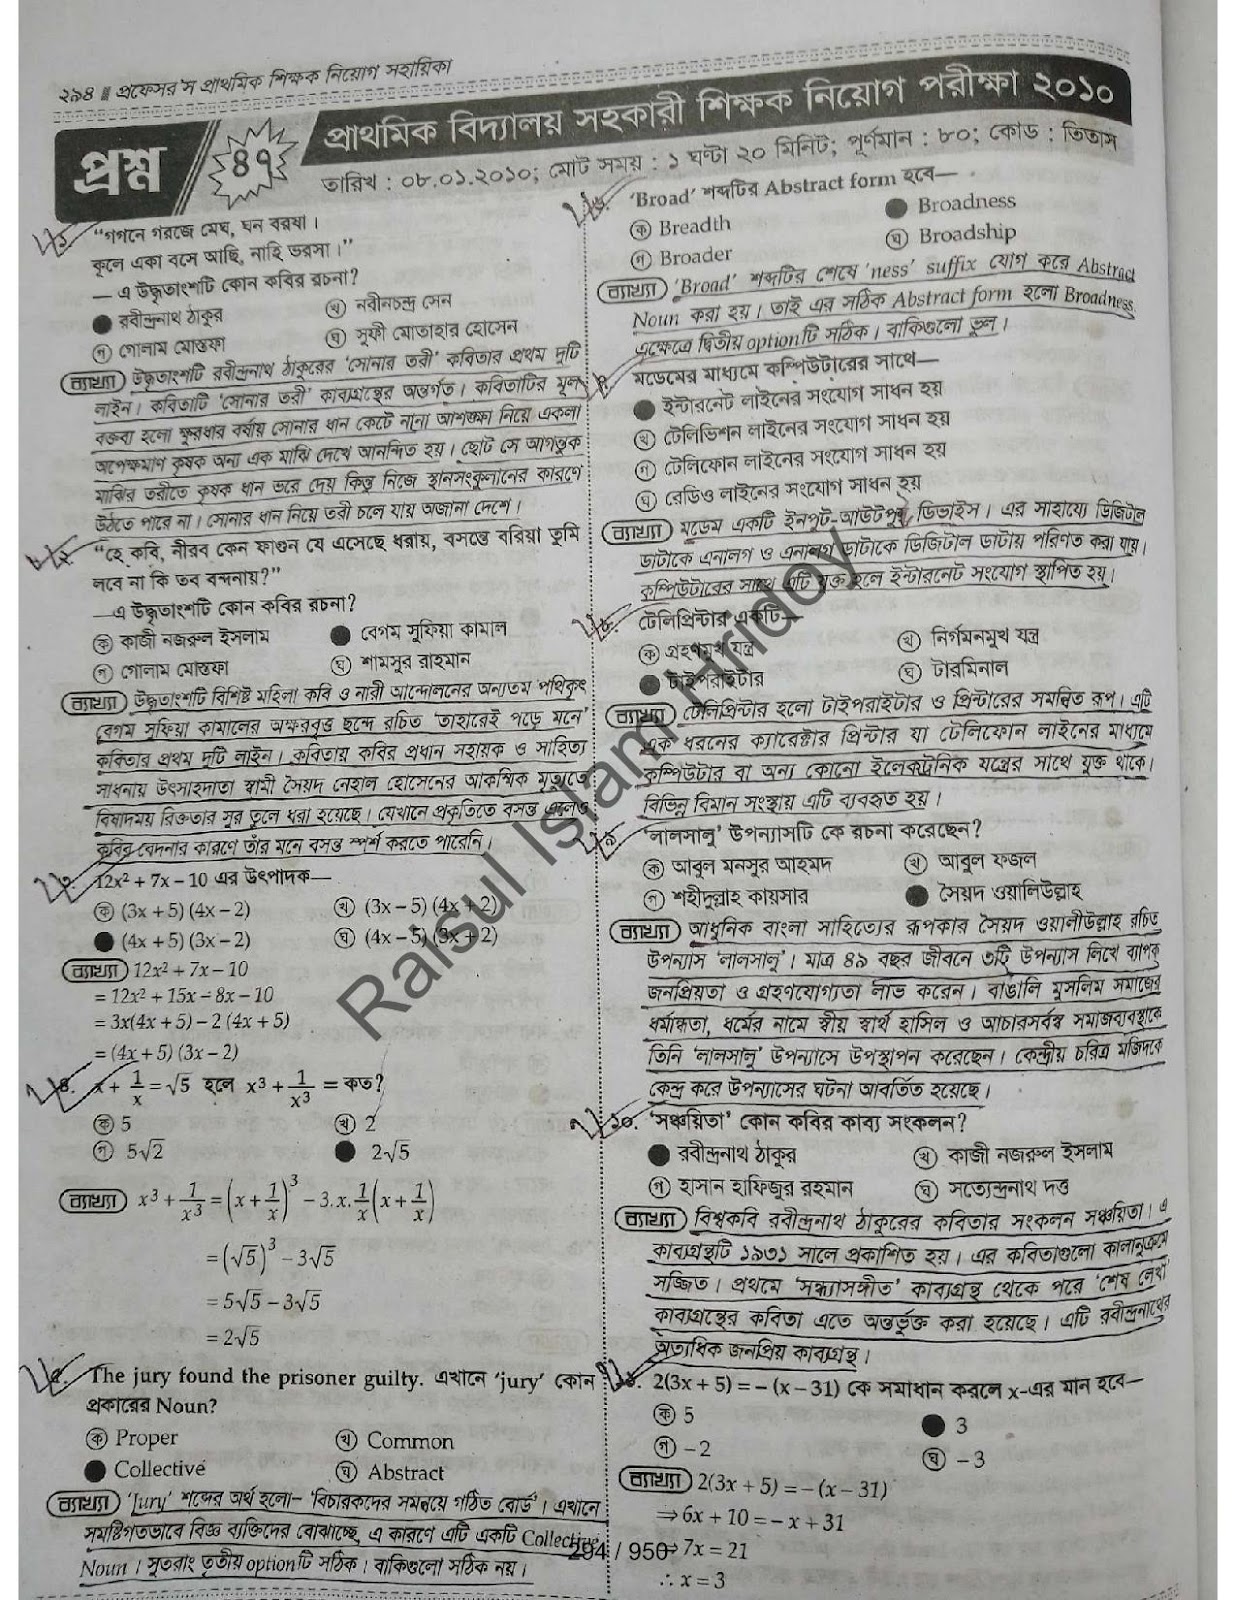 ২৯৪ ≣ প্রফেসর'স প্রাথমিক শিক্ষক নিয়োগ সহায়িকা
প্রশ্ন ৪৭
প্রাথমিক বিদ্যালয় সহকারী শিক্ষক নিয়োগ পরীক্ষা ২০১০
তারিখ : ০৮.০১.২০১০; মোট সময় : ১ ঘণ্টা ২০ মিনিট; পূর্ণমান : ৮০; কোড : তিতাস
১. “গগনে গরজে মেঘ, ঘন বরষা।
কূলে একা বসে আছি, নাহি ভরসা।”
— এ উদ্ধৃতাংশটি কোন কবির রচনা?
● রবীন্দ্রনাথ ঠাকুর ㉿খ নবীনচন্দ্র সেন
গ গোলাম মোস্তফা ঘ সুফী মোতাহার হোসেন
ব্যাখ্যা উদ্ধৃতাংশটি রবীন্দ্রনাথ ঠাকুরের ‘সোনার তরী’ কবিতার প্রথম দুটি
লাইন। কবিতাটি ‘সোনার তরী’ কাব্যগ্রন্থের অন্তর্গত। কবিতাটির মূল
বক্তব্য হলো ক্ষুরধার বর্ষায় সোনার ধান কেটে নানা আশঙ্কা নিয়ে একলা
অপেক্ষমাণ কৃষক অন্য এক মাঝি দেখে আনন্দিত হয়। ছোট সে আগন্তুক
মাঝির তরীতে কৃষক ধান ভরে দেয় কিন্তু নিজে স্থানসংকুলানের কারণে
উঠতে পারে না। সোনার ধান নিয়ে তরী চলে যায় অজানা দেশে।
২. “হে কবি, নীরব কেন ফাগুন যে এসেছে ধরায়, বসন্তে বরিয়া তুমি
লবে না কি তব বন্দনায়?”
—এ উদ্ধৃতাংশটি কোন কবির রচনা?
ক কাজী নজরুল ইসলাম ● বেগম সুফিয়া কামাল
গ গোলাম মোস্তফা ঘ শামসুর রাহমান
ব্যাখ্যা উদ্ধৃতাংশটি বিশিষ্ট মহিলা কবি ও নারী আন্দোলনের অন্যতম পথিকৃৎ
বেগম সুফিয়া কামালের অক্ষরবৃত্ত ছন্দে রচিত ‘তাহারেই পড়ে মনে’
কবিতার প্রথম দুটি লাইন। কবিতায় কবির প্রধান সহায়ক ও সাহিত্য
সাধনায় উৎসাহদাতা স্বামী সৈয়দ নেহাল হোসেনের আকস্মিক মৃত্যুতে
বিষাদময় রিক্ততার সুর তুলে ধরা হয়েছে। যেখানে প্রকৃতিতে বসন্ত এলেও
কবির বেদনার কারণে তাঁর মনে বসন্ত স্পর্শ করতে পারেনি।
৩. 12x² + 7x – 10 এর উৎপাদক—
ক (3x + 5) (4x – 2) খ (3x – 5) (4x + 2)
● (4x + 5) (3x – 2) ঘ (4x – 5) (3x + 2)
ব্যাখ্যা 12x² + 7x – 10
= 12x² + 15x – 8x – 10
= 3x(4x + 5) – 2 (4x + 5)
= (4x + 5) (3x – 2)
৪. x + 1/x = √5 হলে x³ + 1/x³ = কত?
ক 5 খ 2
গ 5√2 ● 2√5
ব্যাখ্যা x³ + 1/x³ = (x + 1/x)³ – 3.x.1/x(x + 1/x)
= (√5)³ – 3√5
= 5√5 – 3√5
= 2√5
৫. The jury found the prisoner guilty. এখানে ‘jury’ কোন
প্রকারের Noun?
ক Proper খ Common
● Collective ঘ Abstract
ব্যাখ্যা ‘Jury’ শব্দের অর্থ হলো– ‘বিচারকদের সমন্বয়ে গঠিত বোর্ড’। এখানে
সমষ্টিগতভাবে বিজ্ঞ ব্যক্তিদের বোঝাচ্ছে, এ কারণে এটি একটি Collective
Noun। সুতরাং তৃতীয় optionটি সঠিক। বাকিগুলো সঠিক নয়।
৬. ‘Broad’ শব্দটির Abstract form হবে—
ক Breadth ● Broadness
গ Broader ঘ Broadship
ব্যাখ্যা ‘Broad’ শব্দটির শেষে ‘ness’ suffix যোগ করে Abstract
Noun করা হয়। তাই এর সঠিক Abstract form হলো Broadness
এক্ষেত্রে দ্বিতীয় optionটি সঠিক। বাকিগুলো ভুল।
৭. মডেমের মাধ্যমে কম্পিউটারের সাথে—
● ইন্টারনেট লাইনের সংযোগ সাধন হয়
খ টেলিভিশন লাইনের সংযোগ সাধন হয়
গ টেলিফোন লাইনের সংযোগ সাধন হয়
ঘ রেডিও লাইনের সংযোগ সাধন হয়
ব্যাখ্যা মডেম একটি ইনপুট-আউটপুট ডিভাইস। এর সাহায্যে ডিজিটাল
ডাটাকে এনালগ ও এনালগ ডাটাকে ডিজিটাল ডাটায় পরিণত করা যায়।
কম্পিউটারের সাথে এটি যুক্ত হলে ইন্টারনেট সংযোগ স্থাপিত হয়।
৮. টেলিপ্রিন্টার একটি—
ক গ্রহণমুখ যন্ত্র খ নির্গমনমুখ যন্ত্র
● টাইপরাইটার ঘ টারমিনাল
ব্যাখ্যা টেলিপ্রিন্টার হলো টাইপরাইটার ও প্রিন্টারের সমন্বিত রূপ। এটি
এক ধরনের ক্যারেক্টার প্রিন্টার যা টেলিফোন লাইনের মাধ্যমে
কম্পিউটার বা অন্য কোনো ইলেকট্রনিক যন্ত্রের সাথে যুক্ত থাকে।
বিভিন্ন বিমান সংস্থায় এটি ব্যবহৃত হয়।
৯. ‘লালসালু’ উপন্যাসটি কে রচনা করেছেন?
ক আবুল মনসুর আহমদ খ আবুল ফজল
গ শহীদুল্লাহ কায়সার ● সৈয়দ ওয়ালিউল্লাহ
ব্যাখ্যা আধুনিক বাংলা সাহিত্যের রূপকার সৈয়দ ওয়ালীউল্লাহ রচিত
উপন্যাস ‘লালসালু’। মাত্র ৪৯ বছর জীবনে ৩টি উপন্যাস লিখে ব্যাপক
জনপ্রিয়তা ও গ্রহণযোগ্যতা লাভ করেন। বাঙালি মুসলিম সমাজের
ধর্মান্ধতা, ধর্মের নামে স্বীয় স্বার্থ হাসিল ও আচারসর্বস্ব সমাজব্যবস্থাকে
তিনি ‘লালসালু’ উপন্যাসে উপস্থাপন করেছেন। কেন্দ্রীয় চরিত্র মজিদকে
কেন্দ্র করে উপন্যাসের ঘটনা আবর্তিত হয়েছে।
১০. ‘সঞ্চয়িতা’ কোন কবির কাব্য সংকলন?
● রবীন্দ্রনাথ ঠাকুর খ কাজী নজরুল ইসলাম
গ হাসান হাফিজুর রহমান ঘ সত্যেন্দ্রনাথ দত্ত
ব্যাখ্যা বিশ্বকবি রবীন্দ্রনাথ ঠাকুরের কবিতার সংকলন সঞ্চয়িতা। এ
কাব্যগ্রন্থটি ১৯৩১ সালে প্রকাশিত হয়। এর কবিতাগুলো কালানুক্রমে
সজ্জিত। প্রথমে ‘সন্ধ্যাসঙ্গীত’ কাব্যগ্রন্থ থেকে পরে ‘শেষ লেখা’
কাব্যগ্রন্থের কবিতা এতে অন্তর্ভুক্ত করা হয়েছে। এটি রবীন্দ্রনাথের
অত্যধিক জনপ্রিয় কাব্যগ্রন্থ।
১১. 2(3x + 5) = – (x – 31) কে সমাধান করলে x-এর মান হবে—
ক 5 ● 3
গ – 2 ঘ – 3
ব্যাখ্যা 2(3x + 5) = – (x – 31)
⇒ 6x + 10 = – x + 31
⇒ 7x = 21
∴ x = 3
Raisul Islam Hridoy
294 / 950